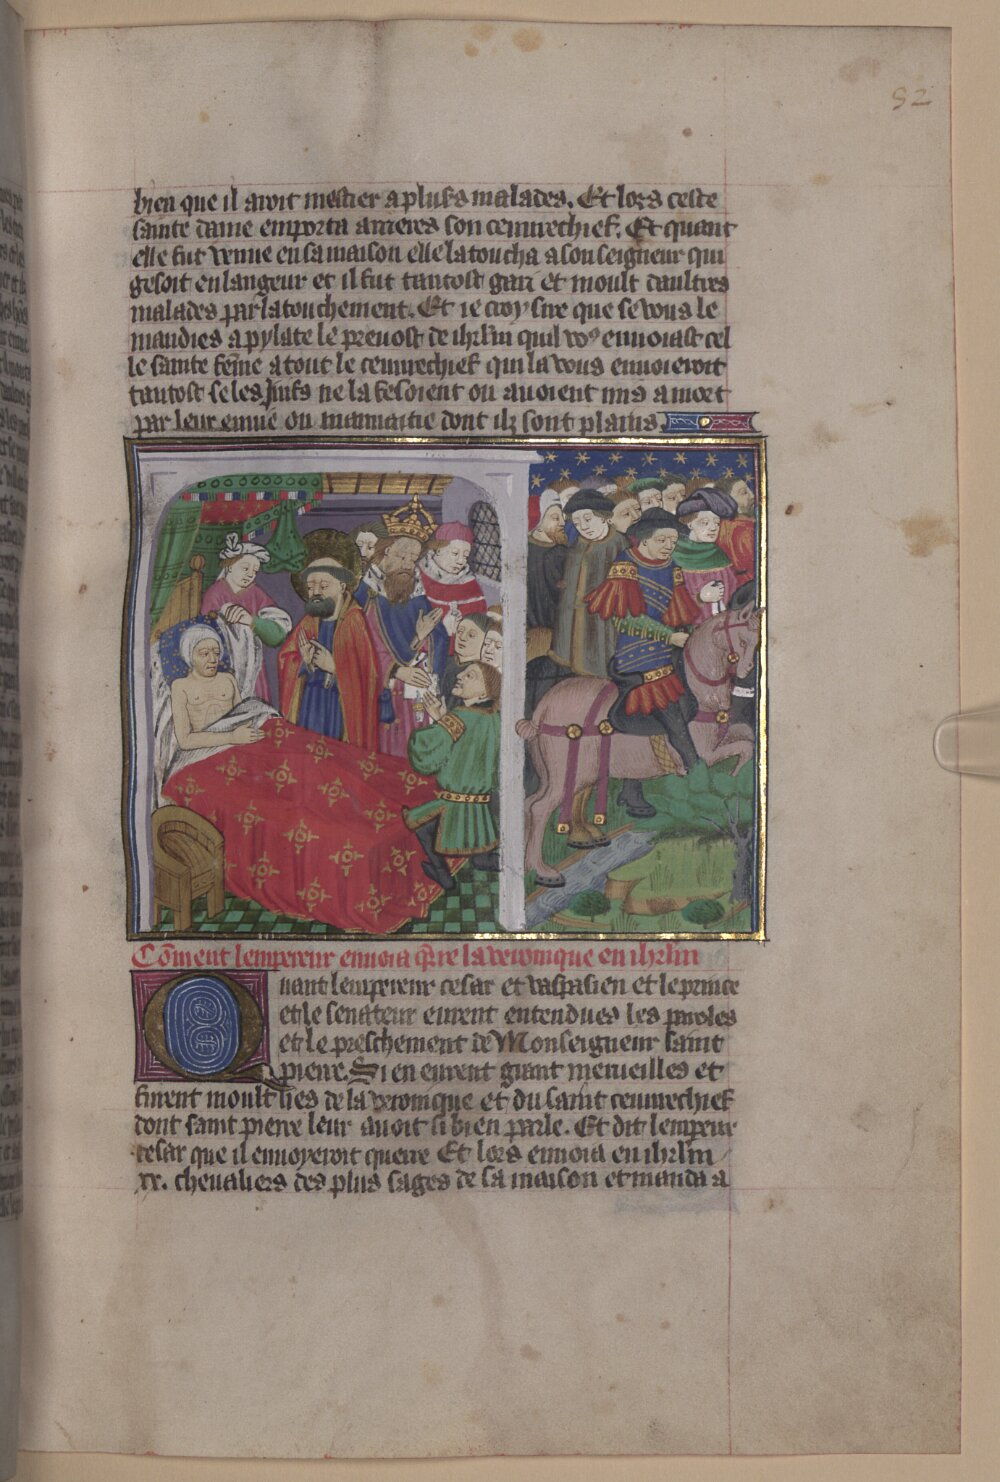 92
bien que il avoit mestier a pluss malades. Et lors ceste
sainte dame emporta arrieres son ceuvrechief. Et quant
elle fut venue en sa maison elle la toucha a son seigneur qui
gesoit en langeur et il fut tantost gari et moult daultres
malades par latouchement. Et ie croy sire que se vous le
mandies a pylate le prevost de ihrlm quil vo⁹ envoiast cel
le sainte feme a tout le ceuvrechief qui la vous envoieroit
tantost se les Juifs ne la fesoient ou avoient mis a mort
par leur envie ou mauvaitie dont ilz sont plains
Coment lempereur envoia qre la veronique en ihrlm
Quant lempereur cesar et vaspasien et le prince
et le senateur eurent entendues les paroles
et le preschement de Monseigneur saint
pierre. Si en eurent grant merveilles et
furent moult lies de la veronique et du saint ceuvrechief
dont saint pierre leur avoit si bien parle. Et dit lempeur
cesar que il envoyeroit querre Et lors envoia en ihrlm
xx. chevaliers des plus sages de sa maison et manda a